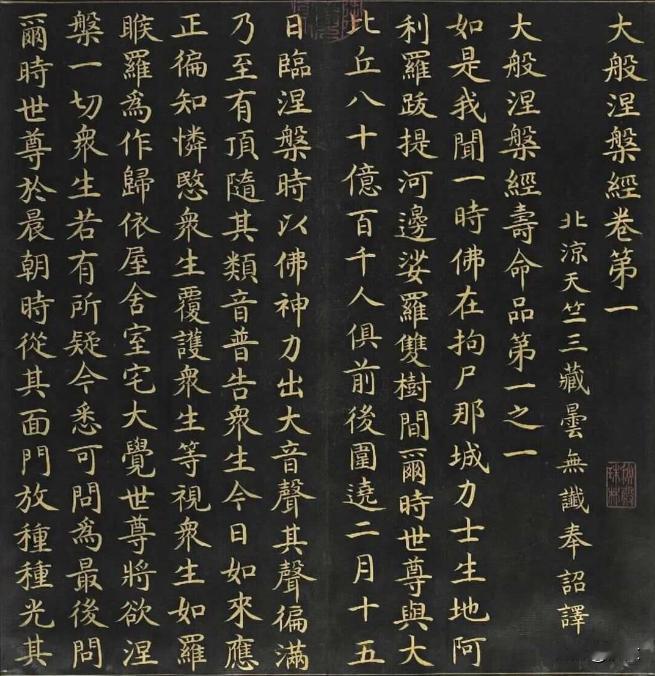 大般涅槃經卷第一
北涼天竺三藏曇無讖奉詔譯
大般涅槃經壽命品第一之一
如是我聞一時佛在拘尸那城力士生地阿
利羅跋提河邊娑羅雙樹間爾時世尊與大
比丘八十億百千人俱前後圍遶二月十五
日臨涅槃時以佛神力出大音聲其聲徧滿
乃至有頂隨其類音普告眾生今日如來應
正徧知憐愍眾生覆護眾生等視眾生如羅
睺羅為作歸依屋舍室宅大覺世尊將欲涅
槃一切眾生若有所疑今悉可問為最後問
爾時世尊於晨朝時從其面門放種種光其